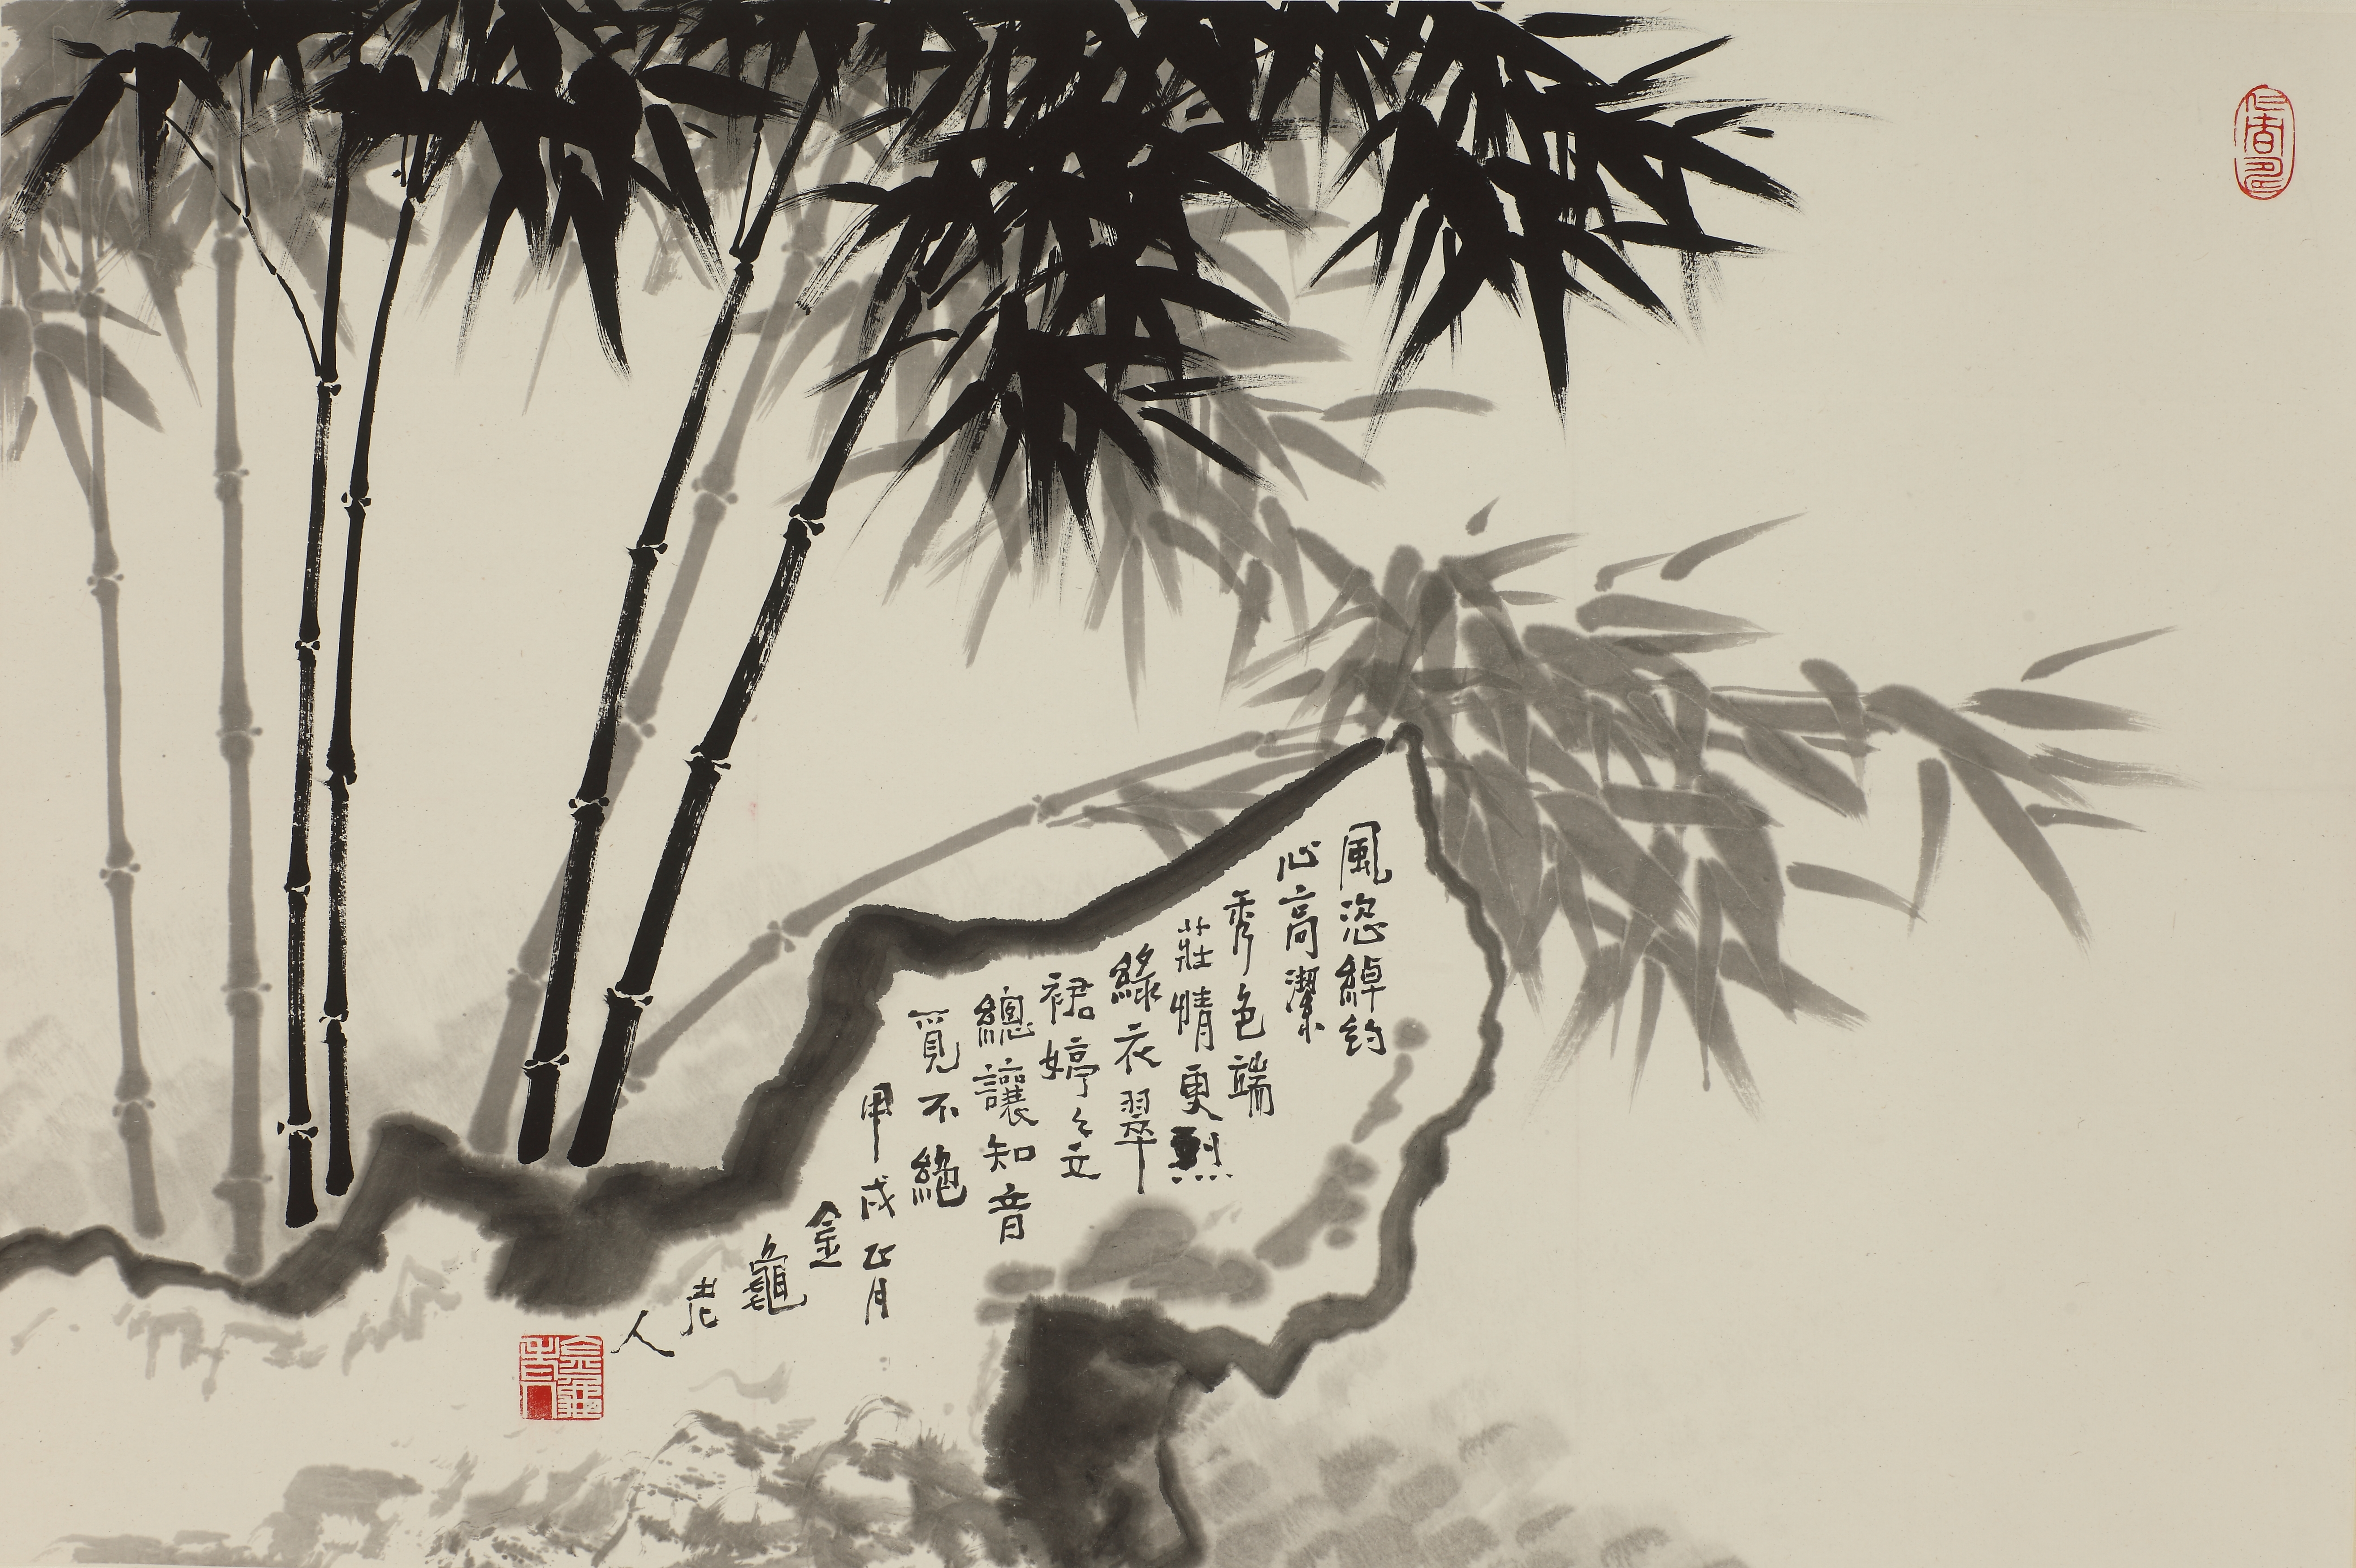 風恣綽約
心高潔
秀色端
莊情更烈
綠衣翠
裙婷々立
總讓知音
覓不絕
甲戌正月
金
龜
老
人
金龜老人